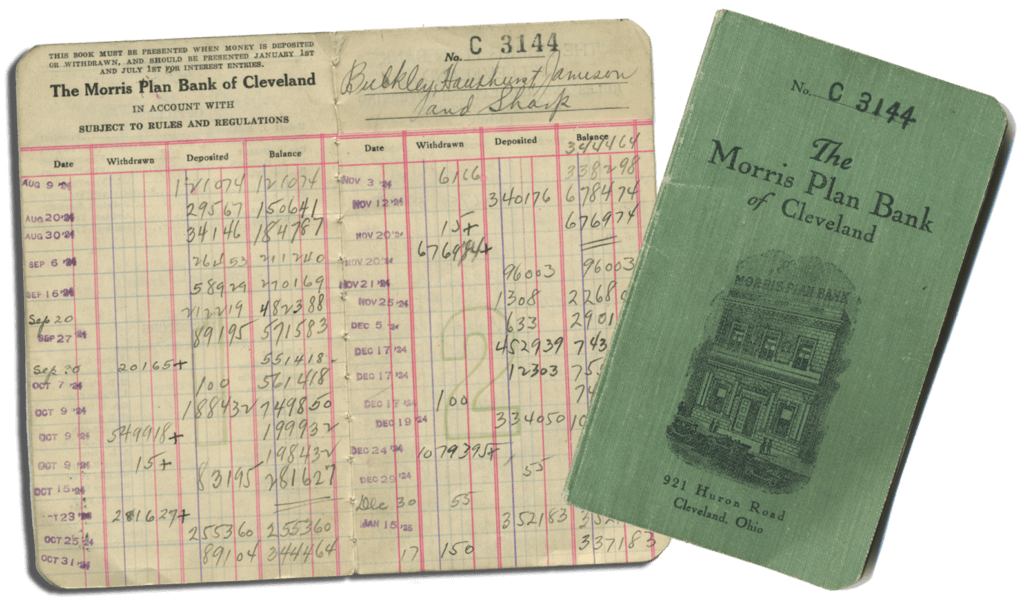 THIS BOOK MUST BE PRESENTED WHEN MONEY IS DEPOSITED
OR WITHDRAWN, AND SHOULD BE PRESENTED JANUARY 1ST
AND JULY 1ST FOR INTEREST ENTRIES.
The Morris Plan Bank of Cleveland
IN ACCOUNT WITH
SUBJECT TO RULES AND REGULATIONS
Date Withdrawn Deposited Balance
AUG 9 '24 121074 121074
AUG 20 '24 29567 150641
AUG 30 '24 34146 184787
SEP 6 '24 26453 211240
SEP 16 '24 58929 270169
Sep 20 212219 482388
SEP 27 '24 89195 571583
Sep 20 20165+ 551418
OCT 7 '24 100 561418
OCT 9 '24 188432 749850
OCT 9 '24 549918+ 199932
OCT 9 '24 15+ 198432
OCT 15 '24 83195 281627
23 '24 281627+
OCT 25 '24 255360 255360
OCT 31 '24 89104 344464
1
No. C 3144
Bulkley, Hauxhurst, Jamison
and Sharp
Date Withdrawn Deposited Balance
344464
NOV 3 '24 6166 338298
NOV 12 '24 340176 678474
NOV 20 '24 15+ 676974
NOV 20 '24 676974+
NOV 21 '24 96003 96003
NOV 25 '24 1308 2268
DEC 5 '24 633 2901
DEC 17 '24 452939 743
DEC 17 '24 12303 755
DEC 17 '24 100 74
DEC 19 '24 334050 10
DEC 24 '24 1079395+
DEC 29 '24 55
Dec 30 55
JAN 15 '25 352183 352
17 150 337183
2
No. C 3144
The
Morris Plan Bank
of Cleveland
MORRIS PLAN BANK
921 Huron Road
Cleveland, Ohio